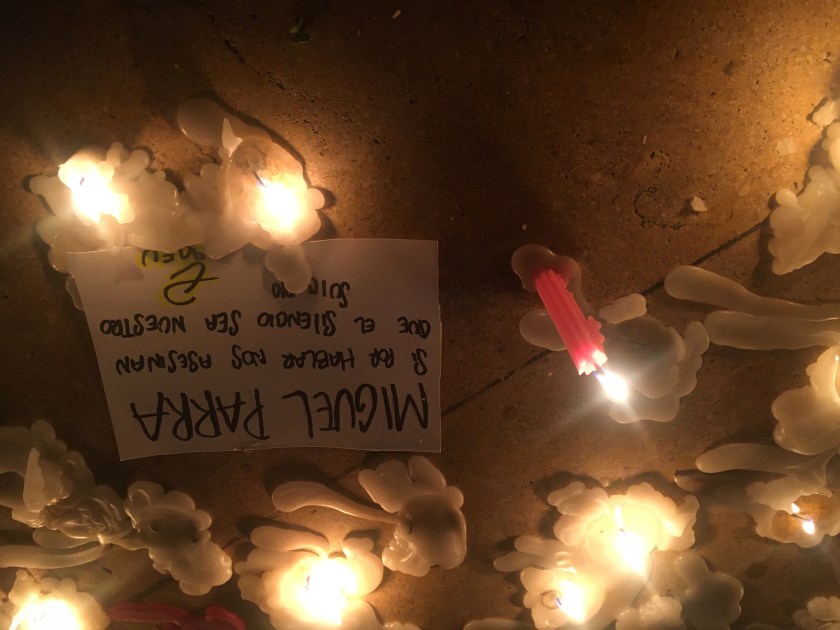 MIGUEL PARRA
SI POR HABLAR NOS ASESINAN
QUE EL SILENCIO SEA NUESTRO